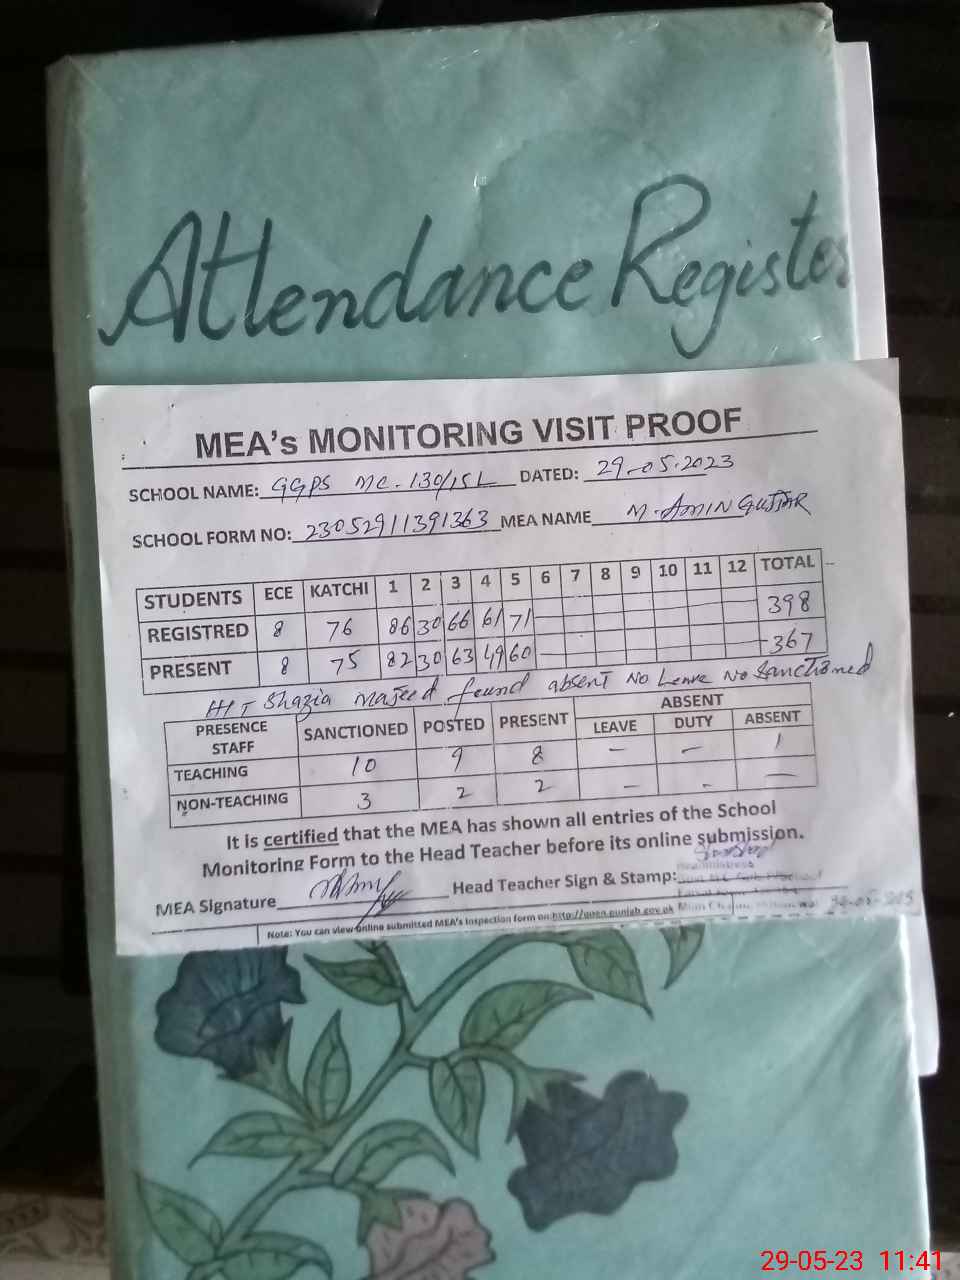 Attendance Register
MEA's MONITORING VISIT PROOF
SCHOOL NAME: GGPS MC-130/15L DATED: 29-05-2023
SCHOOL FORM NO: 23052911391363 MEA NAME M. AMIN GUJJAR
STUDENTS ECE KATCHI 1 2 3 4 5 6 7 8 9 10 11 12 TOTAL
REGISTRED 8 76 86 30 66 61 71 398
PRESENT 8 75 82 30 63 49 60 367
HT Shazia Majeed found absent No Leave No Sanctioned
PRESENCE STAFF SANCTIONED POSTED PRESENT ABSENT
LEAVE DUTY ABSENT
TEACHING 10 9 8 - - 1
NON-TEACHING 3 2 2 - - -
It is certified that the MEA has shown all entries of the School
Monitoring Form to the Head Teacher before its online submission.
MEA Signature Head Teacher Sign & Stamp:
Note: You can view online submitted MEA's Inspection form on http://open.punjab.gov.pk
29-05-23 11:41